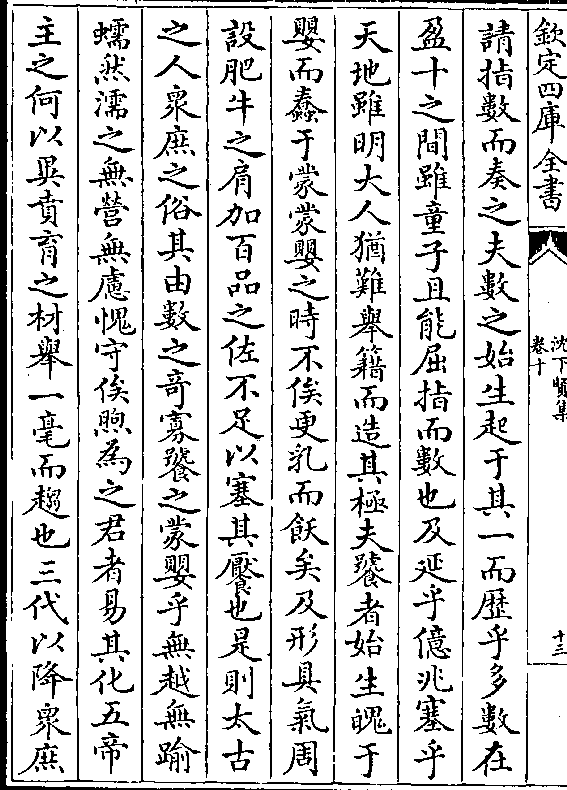 欽定四庫全書
沈下賢集
卷十
十三
請指數而奏之夫數之始生起于其一而歷乎多數在
盈十之間雖童子且能屈指而數也及延乎億兆塞乎
天地雖明大人猶難舉籍而造其極夫饕者始生䰟于
嬰而蠢于蒙蒙嬰之時不俟更乳而飫矣及形具氣周
設肥牛之肩加百品之佐不足以塞其饜也是則太古
之人衆庶之俗其由數之竒寡饕之蒙嬰乎無越無踰
蠕然濡之無營無慮愧守俟煦為之君者易其化五帝
主之何以異賁育之材舉一毫而趨也三代以降衆庶